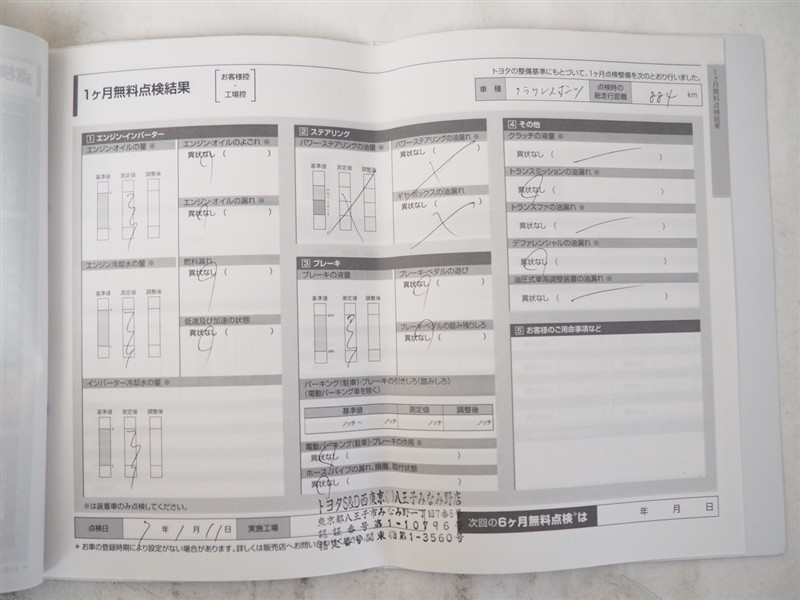 1ヶ月無料点検結果
お客様控
・
工場控
トヨタの整備基準にもとづいて、1ヶ月点検整備を次のとおり行いました。
車種
点検時の
総走行距離
884 km
1 エンジン・インバーター
エンジン・オイルの量 ※
基準値 測定値 調整後
エンジン・オイルのよごれ ※
異状なし ( )
エンジン・オイルの漏れ ※
異状なし ( )
エンジン冷却水の量 ※
基準値 測定値 調整後
燃料漏れ
異状なし ( )
低速及び加速の状態
異状なし ( )
インバーター冷却水の量 ※
基準値 測定値 調整後
※は装着車のみ点検してください。
2 ステアリング
パワー・ステアリングの油量 ※
基準値 測定値 調整後
パワー・ステアリングの油漏れ ※
異状なし ( )
ギヤ・ボックスの油漏れ
異状なし ( )
3 ブレーキ
ブレーキの液量
基準値 測定値 調整後
MAX
MIN
ブレーキ・ペダルの遊び
異状なし ( )
ブレーキ・ペダルの踏み残りしろ
異状なし ( )
パーキング(駐車)・ブレーキの引きしろ(踏みしろ)
(電動パーキング車を除く)
基準値 測定値 調整後
ノッチ ~ ノッチ ノッチ ノッチ
電動パーキング(駐車)・ブレーキの作用 ※
異状なし ( )
ホース/パイプの漏れ、損傷、取付状態
異状なし ( )
4 その他
クラッチの液量 ※
異状なし ( )
トランスミッションの油漏れ ※
異状なし ( )
トランスファの油漏れ ※
異状なし ( )
デファレンシャルの油漏れ ※
異状なし ( )
油圧式車高調整装置の油漏れ ※
異状なし ( )
5 お客様のご用命事項など
1ヶ月無料点検結果
点検日 7年1月11日 実施工場
トヨタS&D西東京 八王子みなみ野店
東京都八王子市みなみ野一丁目7番6号
認証番号第1-10796号
指定番号関東指第1-3560号
次回の6ヶ月無料点検*は 年 月 日
* お車の登録時期により設定がない場合があります。詳しくは販売店へお問い合わせ